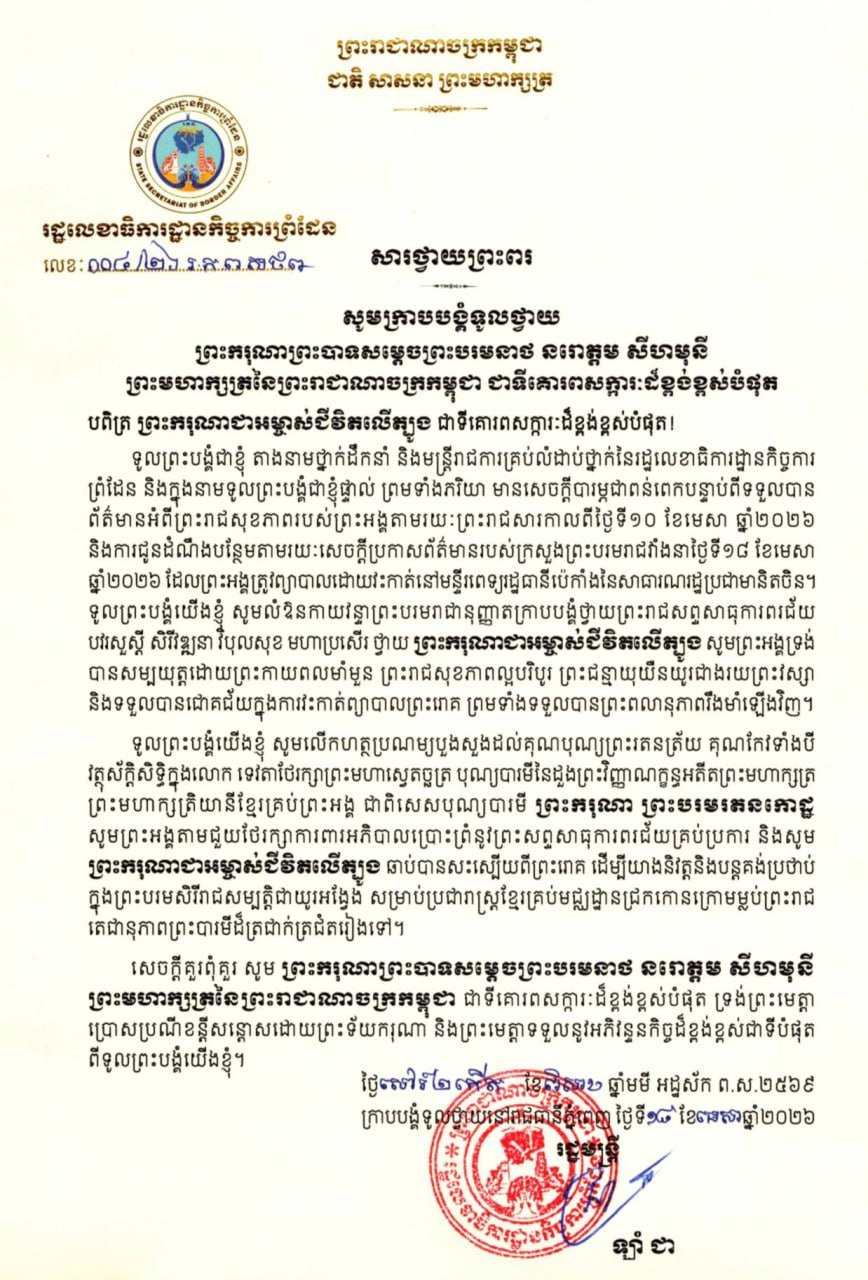 ព្រះរាជាណាចក្រកម្ពុជា
ជាតិ សាសនា ព្រះមហាក្សត្រ
រដ្ឋលេខាធិការដ្ឋានកិច្ចការព្រំដែន
STATE SECRETARIAT OF BORDER AFFAIRS
រដ្ឋលេខាធិការដ្ឋានកិច្ចការព្រំដែន
លេខ: ០០៤/២៦
សារថ្វាយព្រះពរ
សូមក្រាបបង្គំទូលថ្វាយ
ព្រះករុណាព្រះបាទសម្តេចព្រះបរមនាថ នរោត្តម សីហមុនី
ព្រះមហាក្សត្រនៃព្រះរាជាណាចក្រកម្ពុជា ជាទីគោរពសក្ការៈដ៏ខ្ពង់ខ្ពស់បំផុត
បពិត្រ ព្រះករុណាជាអម្ចាស់ជីវិតលើត្បូង ជាទីគោរពសក្ការៈដ៏ខ្ពង់ខ្ពស់បំផុត!
ទូលព្រះបង្គំជាខ្ញុំ តាងនាមថ្នាក់ដឹកនាំ និងមន្ត្រីរាជការគ្រប់លំដាប់ថ្នាក់នៃរដ្ឋលេខាធិការដ្ឋានកិច្ចការ
ព្រំដែន និងក្នុងនាមទូលព្រះបង្គំជាខ្ញុំផ្ទាល់ ព្រមទាំងភរិយា មានសេចក្តីបារម្ភជាពន់ពេកបន្ទាប់ពីទទួលបាន
ព័ត៌មានអំពីព្រះរាជសុខភាពរបស់ព្រះអង្គតាមរយៈព្រះរាជសារកាលពីថ្ងៃទី១០ ខែមេសា ឆ្នាំ២០២៦
និងការជូនដំណឹងបន្ថែមតាមរយៈសេចក្តីប្រកាសព័ត៌មានរបស់ក្រសួងព្រះបរមរាជវាំងនាថ្ងៃទី១៨ ខែមេសា
ឆ្នាំ២០២៦ ដែលព្រះអង្គត្រូវព្យាបាលដោយវះកាត់នៅមន្ទីរពេទ្យរដ្ឋធានីប៉េកាំងនៃសាធារណរដ្ឋប្រជាមានិតចិន។
ទូលព្រះបង្គំយើងខ្ញុំ សូមលំឱនកាយវន្ទាព្រះបរមរាជានុញ្ញាតក្រាបបង្គំថ្វាយព្រះរាជសព្ទសាធុការពរជ័យ
បវរសួស្តី សិរីវឌ្ឍនា វិបុលសុខ មហាប្រសើរ ថ្វាយ ព្រះករុណាជាអម្ចាស់ជីវិតលើត្បូង សូមព្រះអង្គទ្រង់
បានសម្បយុត្តដោយព្រះកាយពលមាំមួន ព្រះរាជសុខភាពល្អបរិបូរ ព្រះជន្មាយុយឺនយូរជាងរយព្រះវស្សា
និងទទួលបានជោគជ័យក្នុងការវះកាត់ព្យាបាលព្រះរោគ ព្រមទាំងទទួលបានព្រះពលានុភាពរឹងមាំឡើងវិញ។
ទូលព្រះបង្គំយើងខ្ញុំ សូមលើកហត្ថប្រណម្យបួងសួងដល់គុណបុណ្យព្រះរតនត្រ័យ គុណកែវទាំងបី
វត្ថុស័ក្តិសិទ្ធិក្នុងលោក ទេវតាថែរក្សាព្រះមហាស្វេតច្ឆត្រ បុណ្យបារមីនៃដួងព្រះវិញ្ញាណក្ខន្ធអតីតព្រះមហាក្សត្រ
ព្រះមហាក្សត្រិយានីខ្មែរគ្រប់ព្រះអង្គ ជាពិសេសបុណ្យបារមី ព្រះករុណា ព្រះបរមរតនកោដ្ឋ
សូមព្រះអង្គតាមជួយថែរក្សាការពារអភិបាលប្រោះព្រំនូវព្រះសព្ទសាធុការពរជ័យគ្រប់ប្រការ និងសូម
ព្រះករុណាជាអម្ចាស់ជីវិតលើត្បូង ឆាប់បានសះស្បើយពីព្រះរោគ ដើម្បីយាងនិវត្តនិងបន្តគង់ប្រថាប់
ក្នុងព្រះបរមសិរីរាជសម្បត្តិជាយូរអង្វែង សម្រាប់ប្រជារាស្ត្រខ្មែរគ្រប់មជ្ឈដ្ឋានជ្រកកោនក្រោមម្លប់ព្រះរាជ
តេជានុភាពព្រះបារមីដ៏ត្រជាក់ត្រជំតរៀងទៅ។
សេចក្តីគួរពុំគួរ សូម ព្រះករុណាព្រះបាទសម្តេចព្រះបរមនាថ នរោត្តម សីហមុនី
ព្រះមហាក្សត្រនៃព្រះរាជាណាចក្រកម្ពុជា ជាទីគោរពសក្ការៈដ៏ខ្ពង់ខ្ពស់បំផុត ទ្រង់ព្រះមេត្តា
ប្រោសប្រណីខន្តីសន្តោសដោយព្រះទ័យករុណា និងព្រះមេត្តាទទួលនូវអភិវន្ទនកិច្ចដ៏ខ្ពង់ខ្ពស់ជាទីបំផុត
ពីទូលព្រះបង្គំយើងខ្ញុំ។
ថ្ងៃសៅរ៍២កើត ខែពិសាខ ឆ្នាំមមី អដ្ឋស័ក ព.ស.២៥៦៩
ក្រាបបង្គំទូលថ្វាយនៅរាជធានីភ្នំពេញ ថ្ងៃទី១៨ ខែមេសាឆ្នាំ២០២៦
រដ្ឋមន្ត្រី
ឡាំ ជា